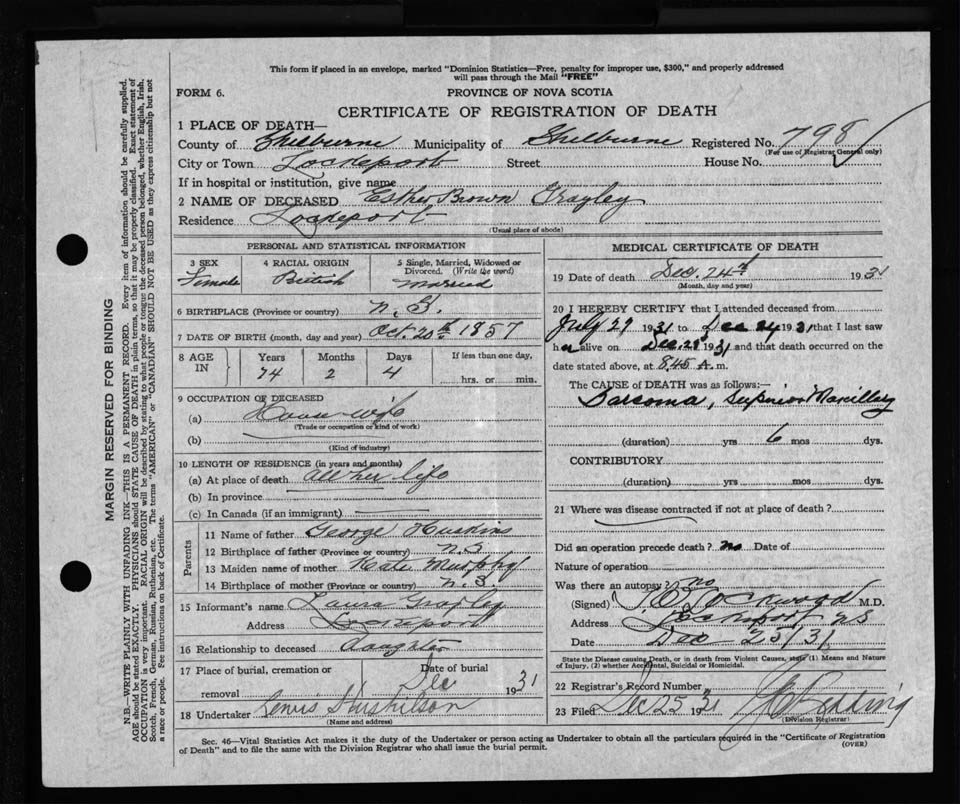 This form if placed in an envelope, marked "Dominion Statistics—Free, penalty for improper use, $300," and properly addressed
will pass through the Mail "FREE"
FORM 6. PROVINCE OF NOVA SCOTIA
CERTIFICATE OF REGISTRATION OF DEATH
1 PLACE OF DEATH—
County of Shelburne Municipality of Shelburne Registered No. 798
(For use of Registrar General only)
City or Town Lockeport Street House No.
If in hospital or institution, give name
2 NAME OF DECEASED Esther Brown
Residence Lockeport
(Usual place of abode)
PERSONAL AND STATISTICAL INFORMATION
3 SEX 4 RACIAL ORIGIN 5 Single, Married, Widowed or
Divorced. (Write the word)
Female British Married
6 BIRTHPLACE (Province or country) N.S.
7 DATE OF BIRTH (month, day and year) Oct. 20th 1857
8 AGE IN Years Months Days If less than one day,
74 2 4 hrs. or min.
9 OCCUPATION OF DECEASED
(a) House-wife
(Trade or occupation or kind of work)
(b)
(Kind of industry)
10 LENGTH OF RESIDENCE (in years and months)
(a) At place of death all her life
(b) In province
(c) In Canada (if an immigrant)
Parents
11 Name of father George Huskins
12 Birthplace of father (Province or country) N.S
13 Maiden name of mother Kate Murphy
14 Birthplace of mother (Province or country) N.S
15 Informant's name Laura
Address Lockeport
16 Relationship to deceased daugter
17 Place of burial, cremation or Date of burial
removal Dec 1931
18 Undertaker Lewis
(Name and address)
MEDICAL CERTIFICATE OF DEATH
19 Date of death Dec. 24th 1931
(Month, day and year)
20 I HEREBY CERTIFY that I attended deceased from
July 29 1931 to Dec 24 1931 that I last saw
her alive on Dec. 1931 and that death occurred on the
date stated above, at 8.45 A.m.
The CAUSE of DEATH was as follows:—
Sarcoma, Superior Maxillary
(duration) yrs 6 mos dys.
CONTRIBUTORY
(duration) yrs mos dys.
21 Where was disease contracted if not at place of death?
Did an operation precede death? no Date of
Nature of operation
Was there an autopsy? no
(Signed) Lockwood M.D.
Address Lockeport NS
Date Dec 25/31
State the Disease causing Death, or in death from Violent Causes, state (1) Means and Nature
of Injury, (2) whether Accidental, Suicidal or Homicidal.
22 Registrar's Record Number
23 Filed Dec 25 1931
(Division Registrar)
Sec. 46—Vital Statistics Act makes it the duty of the Undertaker or person acting as Undertaker to obtain all the particulars required in the "Certificate of Registration
of Death" and to file the same with the Division Registrar who shall issue the burial permit. (OVER)
MARGIN RESERVED FOR BINDING
N.B.—WRITE PLAINLY WITH UNFADING INK—THIS IS A PERMANENT RECORD. Every item of information should be carefully supplied.
AGE should be stated EXACTLY. PHYSICIANS should STATE CAUSE OF DEATH in plain terms, so that it may be properly classified. Exact statement of
OCCUPATION is very important. RACIAL ORIGIN will be described by stating to what people or tongue the deceased person belonged, whether English, Irish,
Scotch, French, German, Russian, Ruthenian, etc. The terms "AMERICAN" or "CANADIAN" SHOULD NOT BE USED as they express citizenship but not
a race or people. See instructions on back of Certificate.